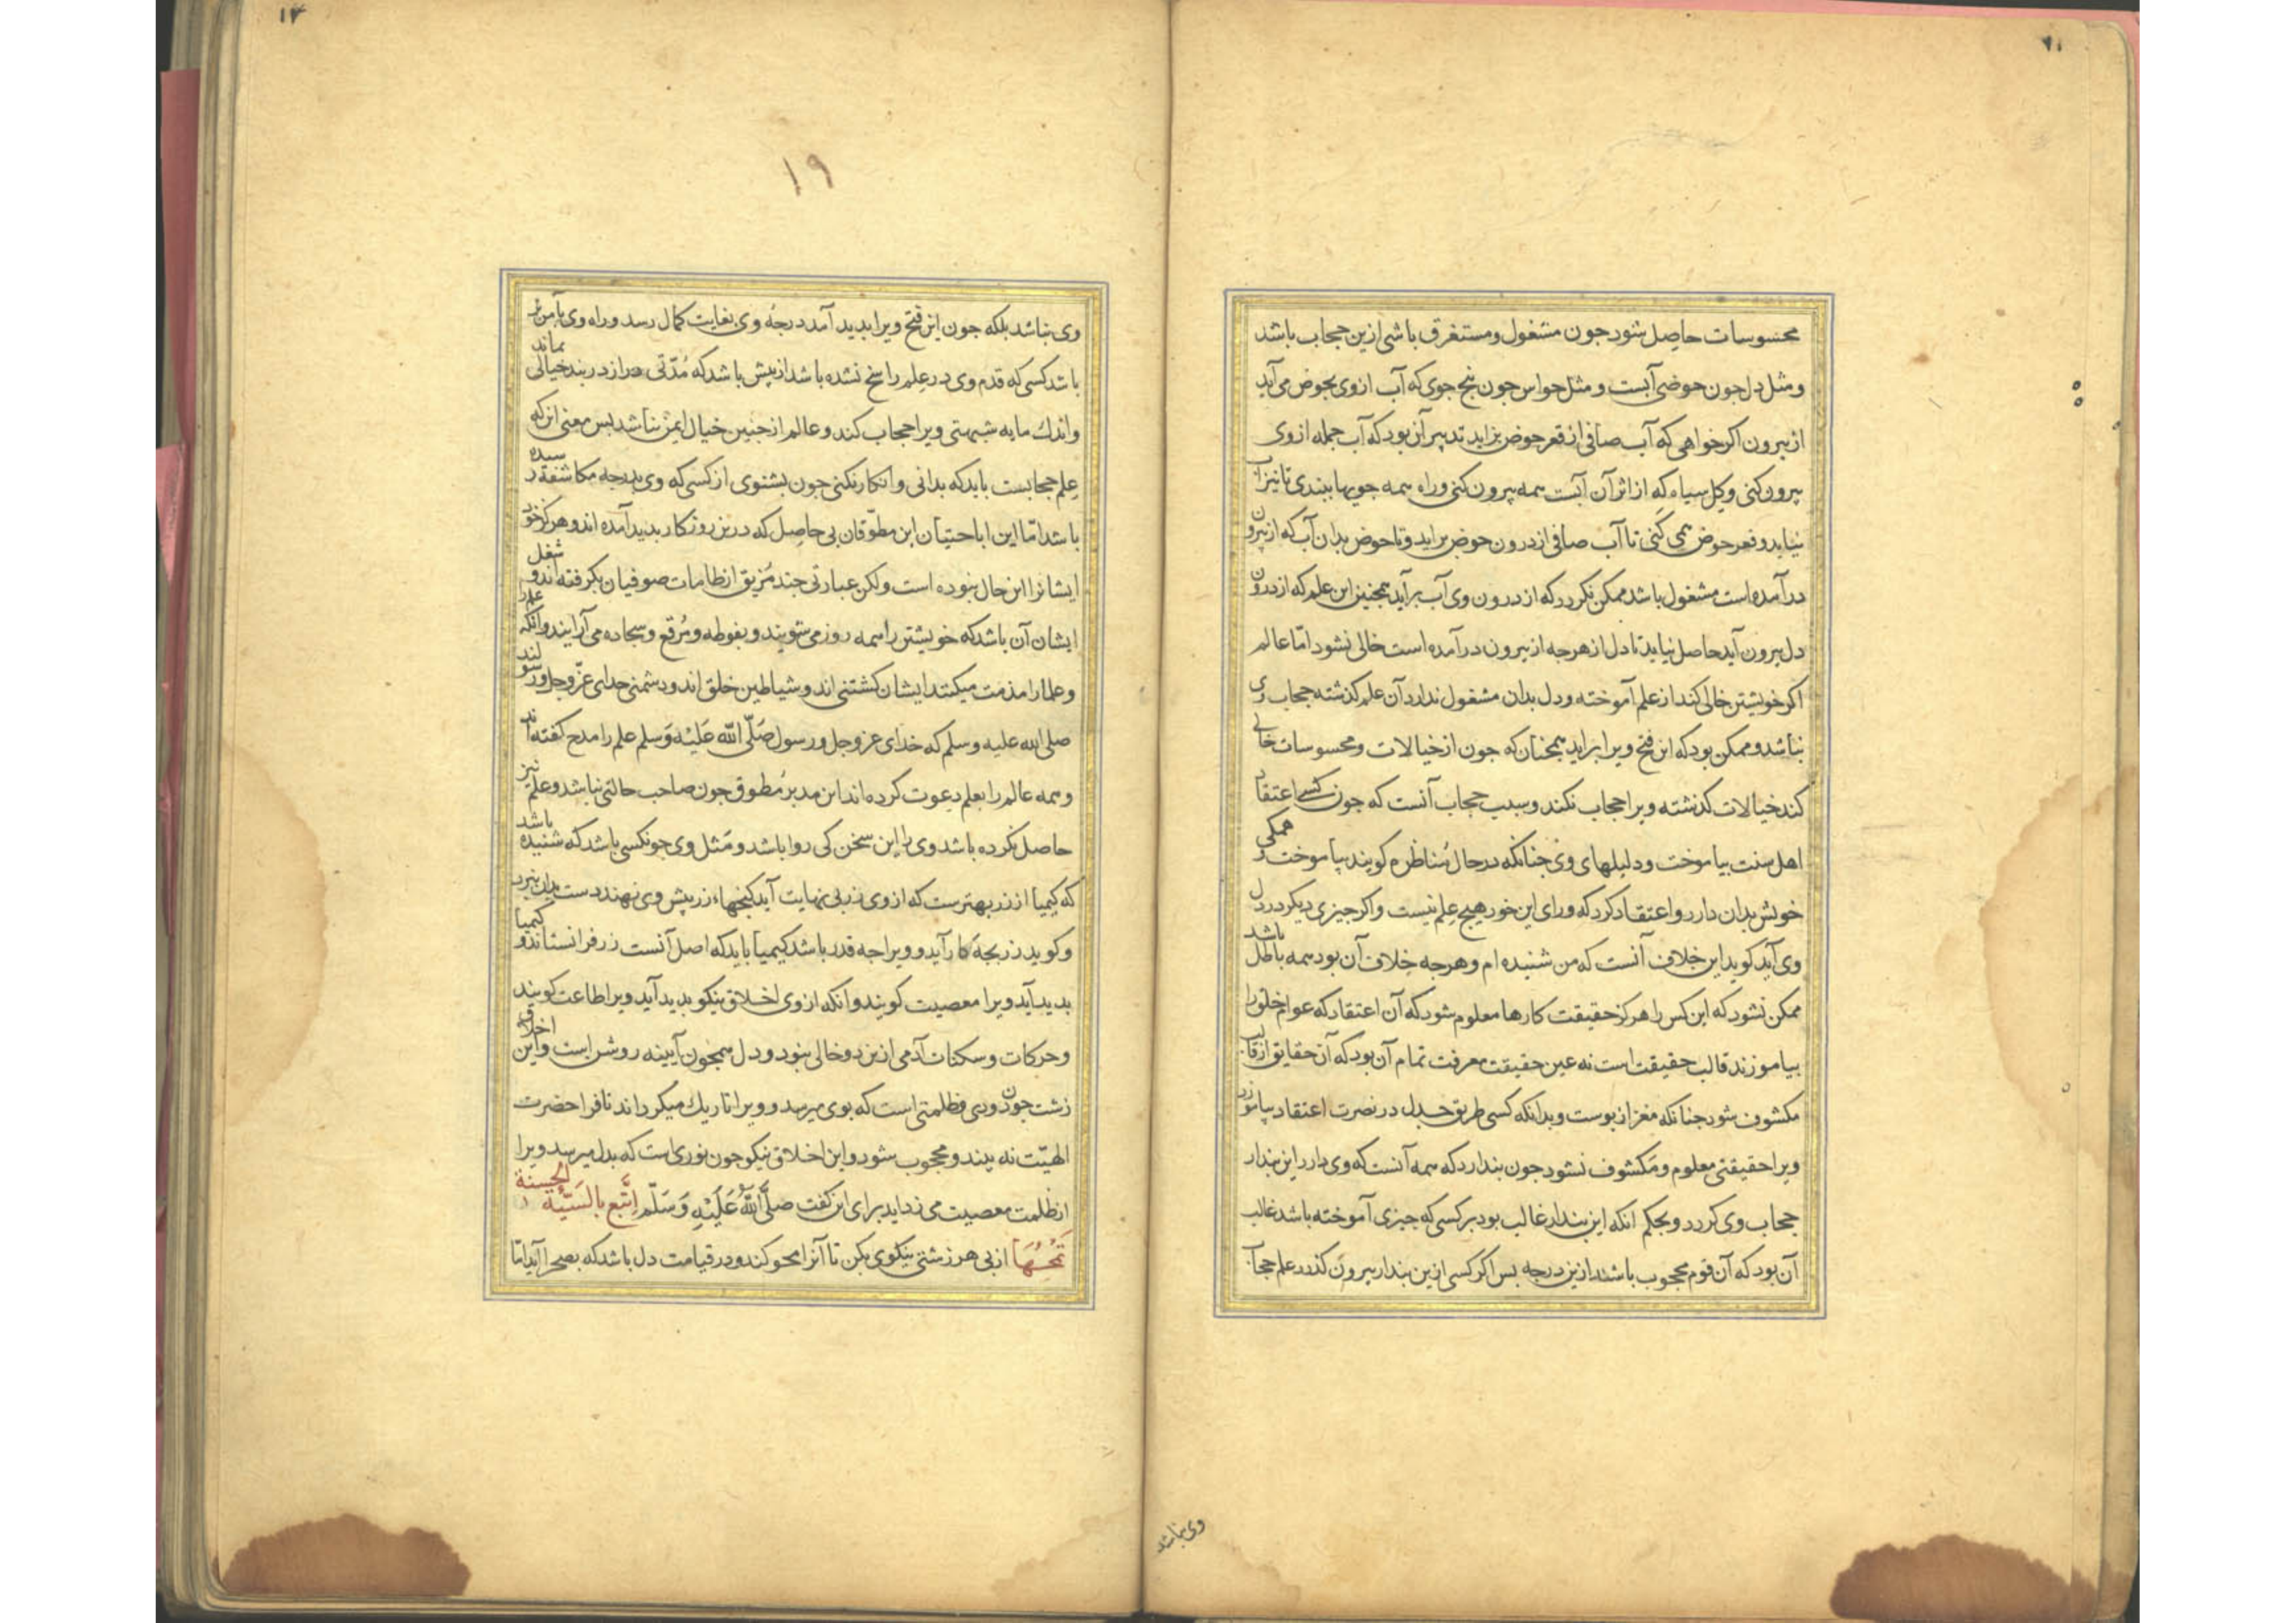 ۱۱
محسوسات حاصل شود جون مشغول و مستغرق باشی ازین حجاب باشد
و مثل دل جون حوضی آبست و مثل حواس جون پنج جوی که آب از وی بحوض می آید
از بیرون اکر خواهی که آب صافی از قعر حوض بزاید تدبیر آن بود که آب جمله از وی
بیرون کنی و کل سیاه که از اثر آن آبست همه بیرون کنی و راه همه جویها ببندی تا نیز آب
نیاید و قعر حوض همی کنی تا آب صافی از درون حوض براید و تا حوض بدان آب که از بیرون
درآمده است مشغول باشد ممکن نکردد که از درون وی آب برآید همجنین این علم که از درون
دل بیرون آید حاصل نیاید تا دل از هرجه از بیرون درآمده است خالی نشود امّا عالم
اکر خویشتن خالی کند از علم آموخته و دل بدان مشغول ندارد آن علم کذشته حجاب وی
نباشد و ممکن بود که این فتح ویرا براید همجنان که جون از خیالات و محسوسات خالی
کند خیالات کذشته ویرا حجاب نکند و سبب حجاب آنست که جون کسی اعتقاد
اهل سنت بیاموخت و دلیلهای وی جنانکه در حال مُناظره کویند بیاموخت و همکی
خویش بدان دارد و اعتقاد کرد که ورای این خود هیچ علم نیست و اکر جیزی دیکر در دل
وی آید کوید این خلاف آنست که من شنیده ام و هرجه خلاف آن بود همه باطل باشد
ممکن نشود که این کس را هرکز حقیقت کارها معلوم شود که آن اعتقاد که عوام خلق را
بیاموزند قالب حقیقت است نه عین حقیقت معرفت تمام آن بود که آن حقایق از قالب
مکشوف شود جنانکه مغز از بوست و بدانکه کسی طریق جدل در نصرت اعتقاد بیاموزد
ویرا حقیقتی معلوم و مکشوف نشود جون بندارد که همه آنست که وی دارد این بندار
حجاب وی کردد و بحکم انکه این بندار غالب بود بر کسی که جیزی آموخته باشد غالب
آن بود که آن قوم محجوب باشند ازین درجه بس اکر کسی ازین بندار بیرون کذرد علم حجاب
وی نباشد
۱۲
۱۹
وی نباشد بلکه جون این فتح ویرا بدید آمد درجهٔ وی بغایت کمال رسد و راه وی بآمن تر
باشد کسی که قدم وی در علم راسخ نشده باشد از پیش باشد که مُدّتی دراز در بند خیالی بماند
و اندک مایه شبهتی ویرا حجاب کند و عالم از جنین خیال ایمن باشد بس معنی این که
علم حجابست باید که بدانی و انکار نکنی جون بشنوی از کسی که وی بدرجه مکاشفه رسیده
باشد امّا این اباحتیان این مطوّقان بی حاصل که درین روزکار بدید آمده اند و هرکز خود
ایشانرا این حال نبوده است ولکن عبارتی جند مُزیق از طامات صوفیان بکرفته اند و شغل
ایشان آن باشد که خویشتن را همه روز می شویند و بفوطه و مُرقع و سجاده می آرایند و آنکه علم را
و علما را مذمت میکنند ایشان کشتنی اند و شیاطین خلق اند و دشمنی خدای عزّ و جل و رسولند
صلی الله علیه و سلم که خدای عز و جل و رسول صَلَّی اللّٰه عَلَیْه وَسَلم علم را مدح کفته اند
و همه عالم را بعلم دعوت کرده اند این مدبر مُطوق جون صاحب حالتی نباشد و علم نیز
حاصل نکرده باشد وی را این سخن کی روا باشد و مَثل وی جون کسی باشد که شنیده باشد
که کیمیا از زر بهترست که از وی زر بی نهایت آید کنجهاء زر پیش وی نهند دست بدان نبرد
و کوید زر بجه کار آید و ویرا جه قدر باشد کیمیا باید که اصل آنست زر فرانستاند و کیمیا
بدید آید ویرا معصیت کویند و انکه از وی اخلاق نیکو بدید آید ویرا طاعت کویند
و حرکات و سکنات آدمی ازین دو خالی نبود و دل همجون آیینه روشن است و این اخلاق
زشت جون دودی و ظلمتی است که بوی میرسد و ویرا تاریک میکرداند تا فرا حضرت
الهیّت نه بیند و محجوب شود و این اخلاق نیکو جون نوری است که بدل میرسد ویرا
از ظلمت معصیت می زداید برای این کفت صلَّی اللّٰهُ عَلَیْهِ وَ سَلّم اِتَّبع بالسَیّئة الحسنة
تَمْحُهَا از بی هر زشتی نیکوی بکن تا آنرا محو کند و در قیامت دل باشد که بصحرا آید امّا